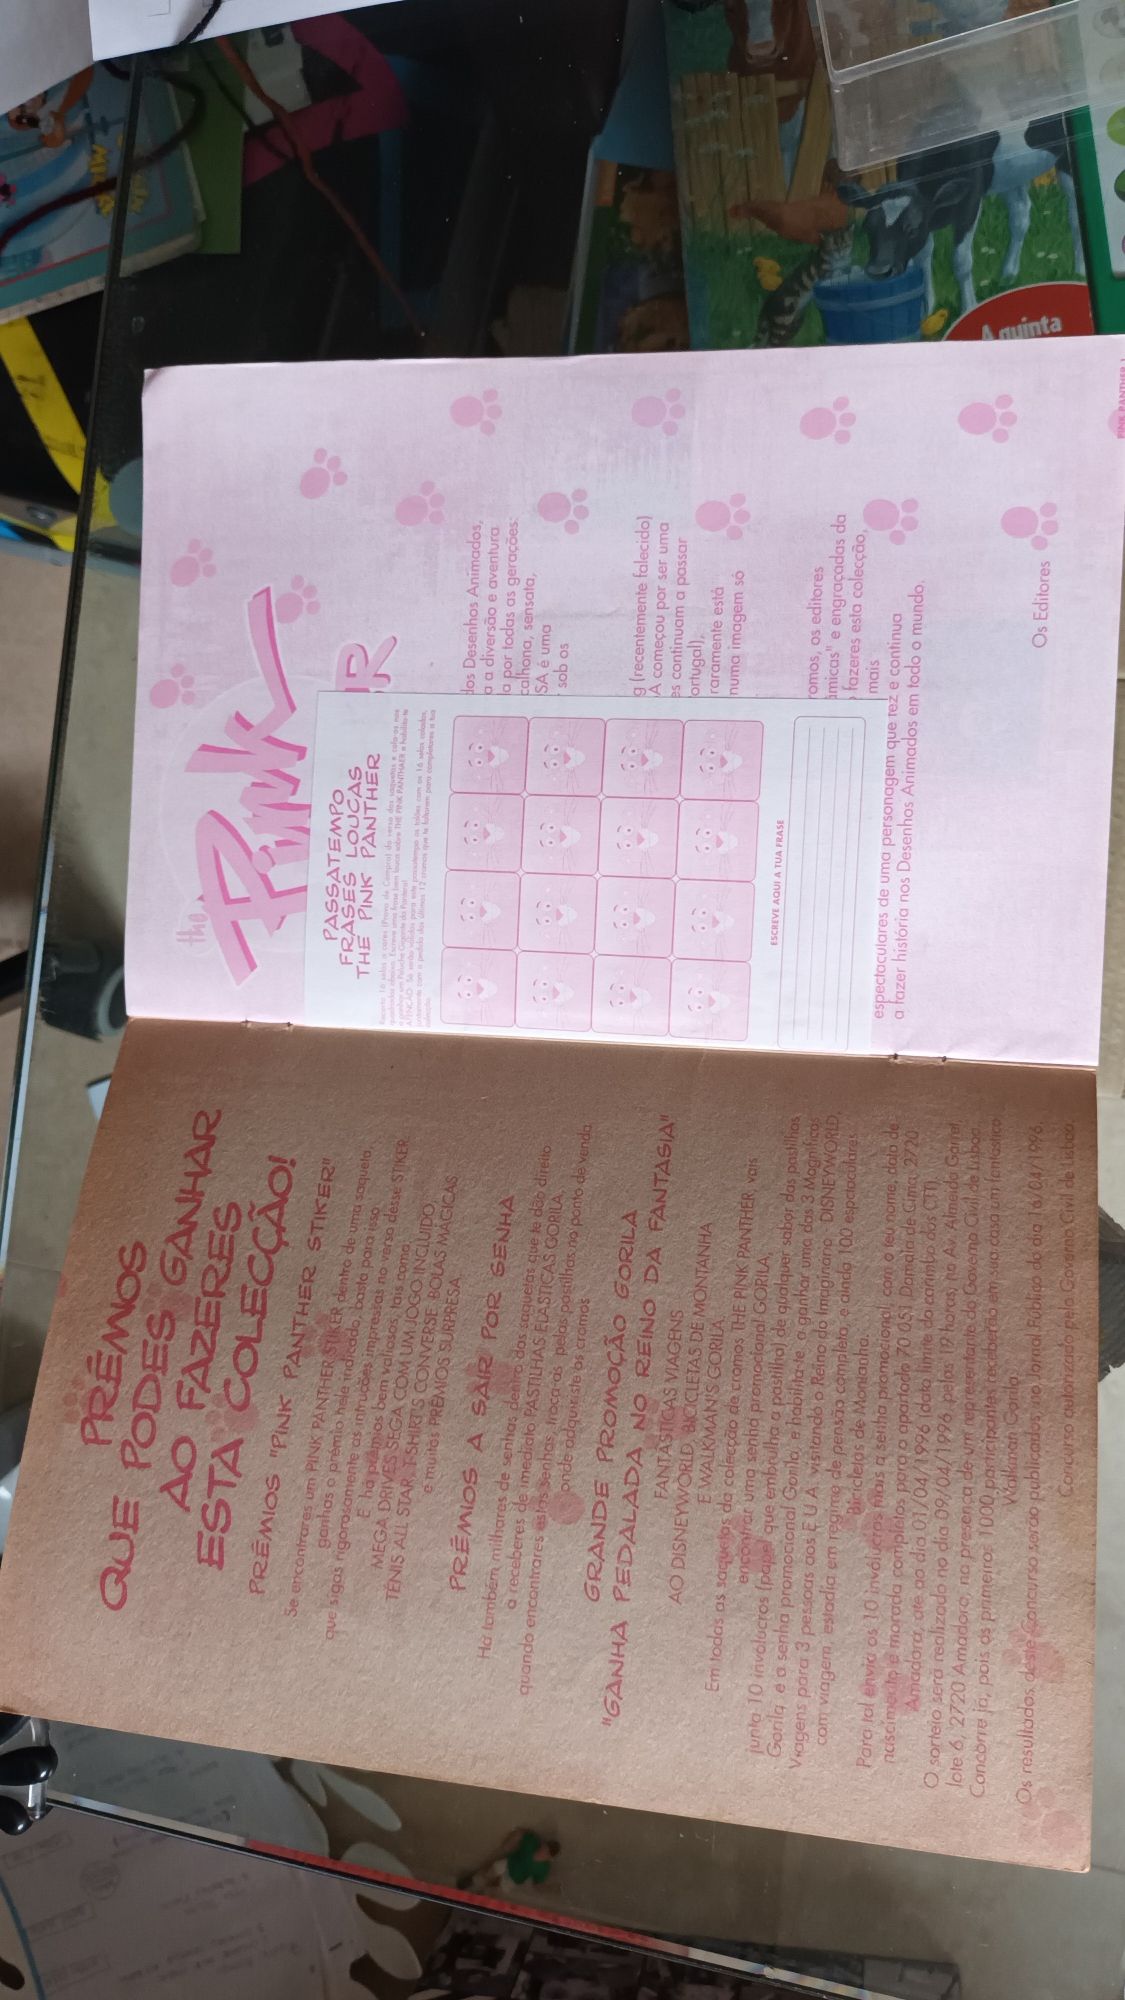 PRÉMIOS
QUE PODES GANHAR
AO FAZERES
ESTA COLECÇÃO!
PRÉMIOS "PINK PANTHER STIKER"
Se encontrares um PINK PANTHER STIKER dentro de uma saqueta,
ganhas o prémio nele indicado, basta para isso
que sigas rigorosamente as intruções impressas no verso desse STIKER.
E há prémios bem valiosos, tais como
MEGA DRIVES SEGA COM UM JOGO INCLUIDO,
TÉNIS ALL STAR, T-SHIRTS CONVERSE, BOLAS MÁGICAS
e muitos PRÉMIOS SURPRESA.
PRÉMIOS A SAIR POR SENHA
Há também milhares de senhas dentro das saquetas que te dão direito
a receberes de imediato PASTILHAS ELÁSTICAS GORILA,
quando encontrares estas senhas, troca-as pelas pastilhas no ponto de venda
onde adquiriste os cromos
GRANDE PROMOÇÃO GORILA
"GANHA PEDALADA NO REINO DA FANTASIA"
FANTÁSTICAS VIAGENS
AO DISNEYWORLD, BICICLETAS DE MONTANHA
E WALKMAN'S GORILA.
Em todas as saquetas da colecção de cromos THE PINK PANTHER, vais
encontrar uma senha promocional GORILA,
junta 10 invólucros (papel que embrulha a pastilha) de qualquer sabor das pastilhas
Gorila, e a senha promocional Gorila, e habilita-te a ganhar uma das 3 Magníficas
Viagens para 3 pessoas aos E.U.A visitando o Reino do Imaginário DISNEYWORLD,
com viagem, estadia em regime de pensão completa, e ainda 100 espectaculares
bicicletas de Montanha.
Para tal envia os 10 invólucros mais a senha promocional, com o teu nome, data de
nascimento e morada completos para o apartado 70 (S.S.) Damaia de Cima, 2720
Amadora, até ao dia 01/04/1996 (data limite do carimbo dos CTT).
O sorteio será realizado no dia 09/04/1996, pelas 19 horas, na Av. Almeida Garret
lote 6, 2720 Amadora, na presença de um representante do Governo Civil de Lisboa.
Concorre já, pois os primeiros 1000 participantes receberão em sua casa um fantástico
Walkman Gorila.
Os resultados deste Concurso serão publicados no Jornal Público do dia 16/04/1996.
Concurso autorizado pelo Governo Civil de Lisboa
the Pink
R
PASSATEMPO
FRASES LOUCAS
THE PINK PANTHER
ESCREVE AQUI A TUA FRASE
dos Desenhos Animados,
a a diversão e aventura
a por todas as gerações:
calhona, sensata,
SA é uma
sob os
g (recentemente falecido)
A começou por ser uma
es continuam a passar
ortugal),
raramente está
numa imagem só
romos, os editores
micas" e engraçadas da
fazeres esta colecção,
mais
espectaculares de uma personagem que fez e continua
a fazer história nos Desenhos Animados em todo o mundo.
Os Editores
PINK PANTHER 1
A quinta